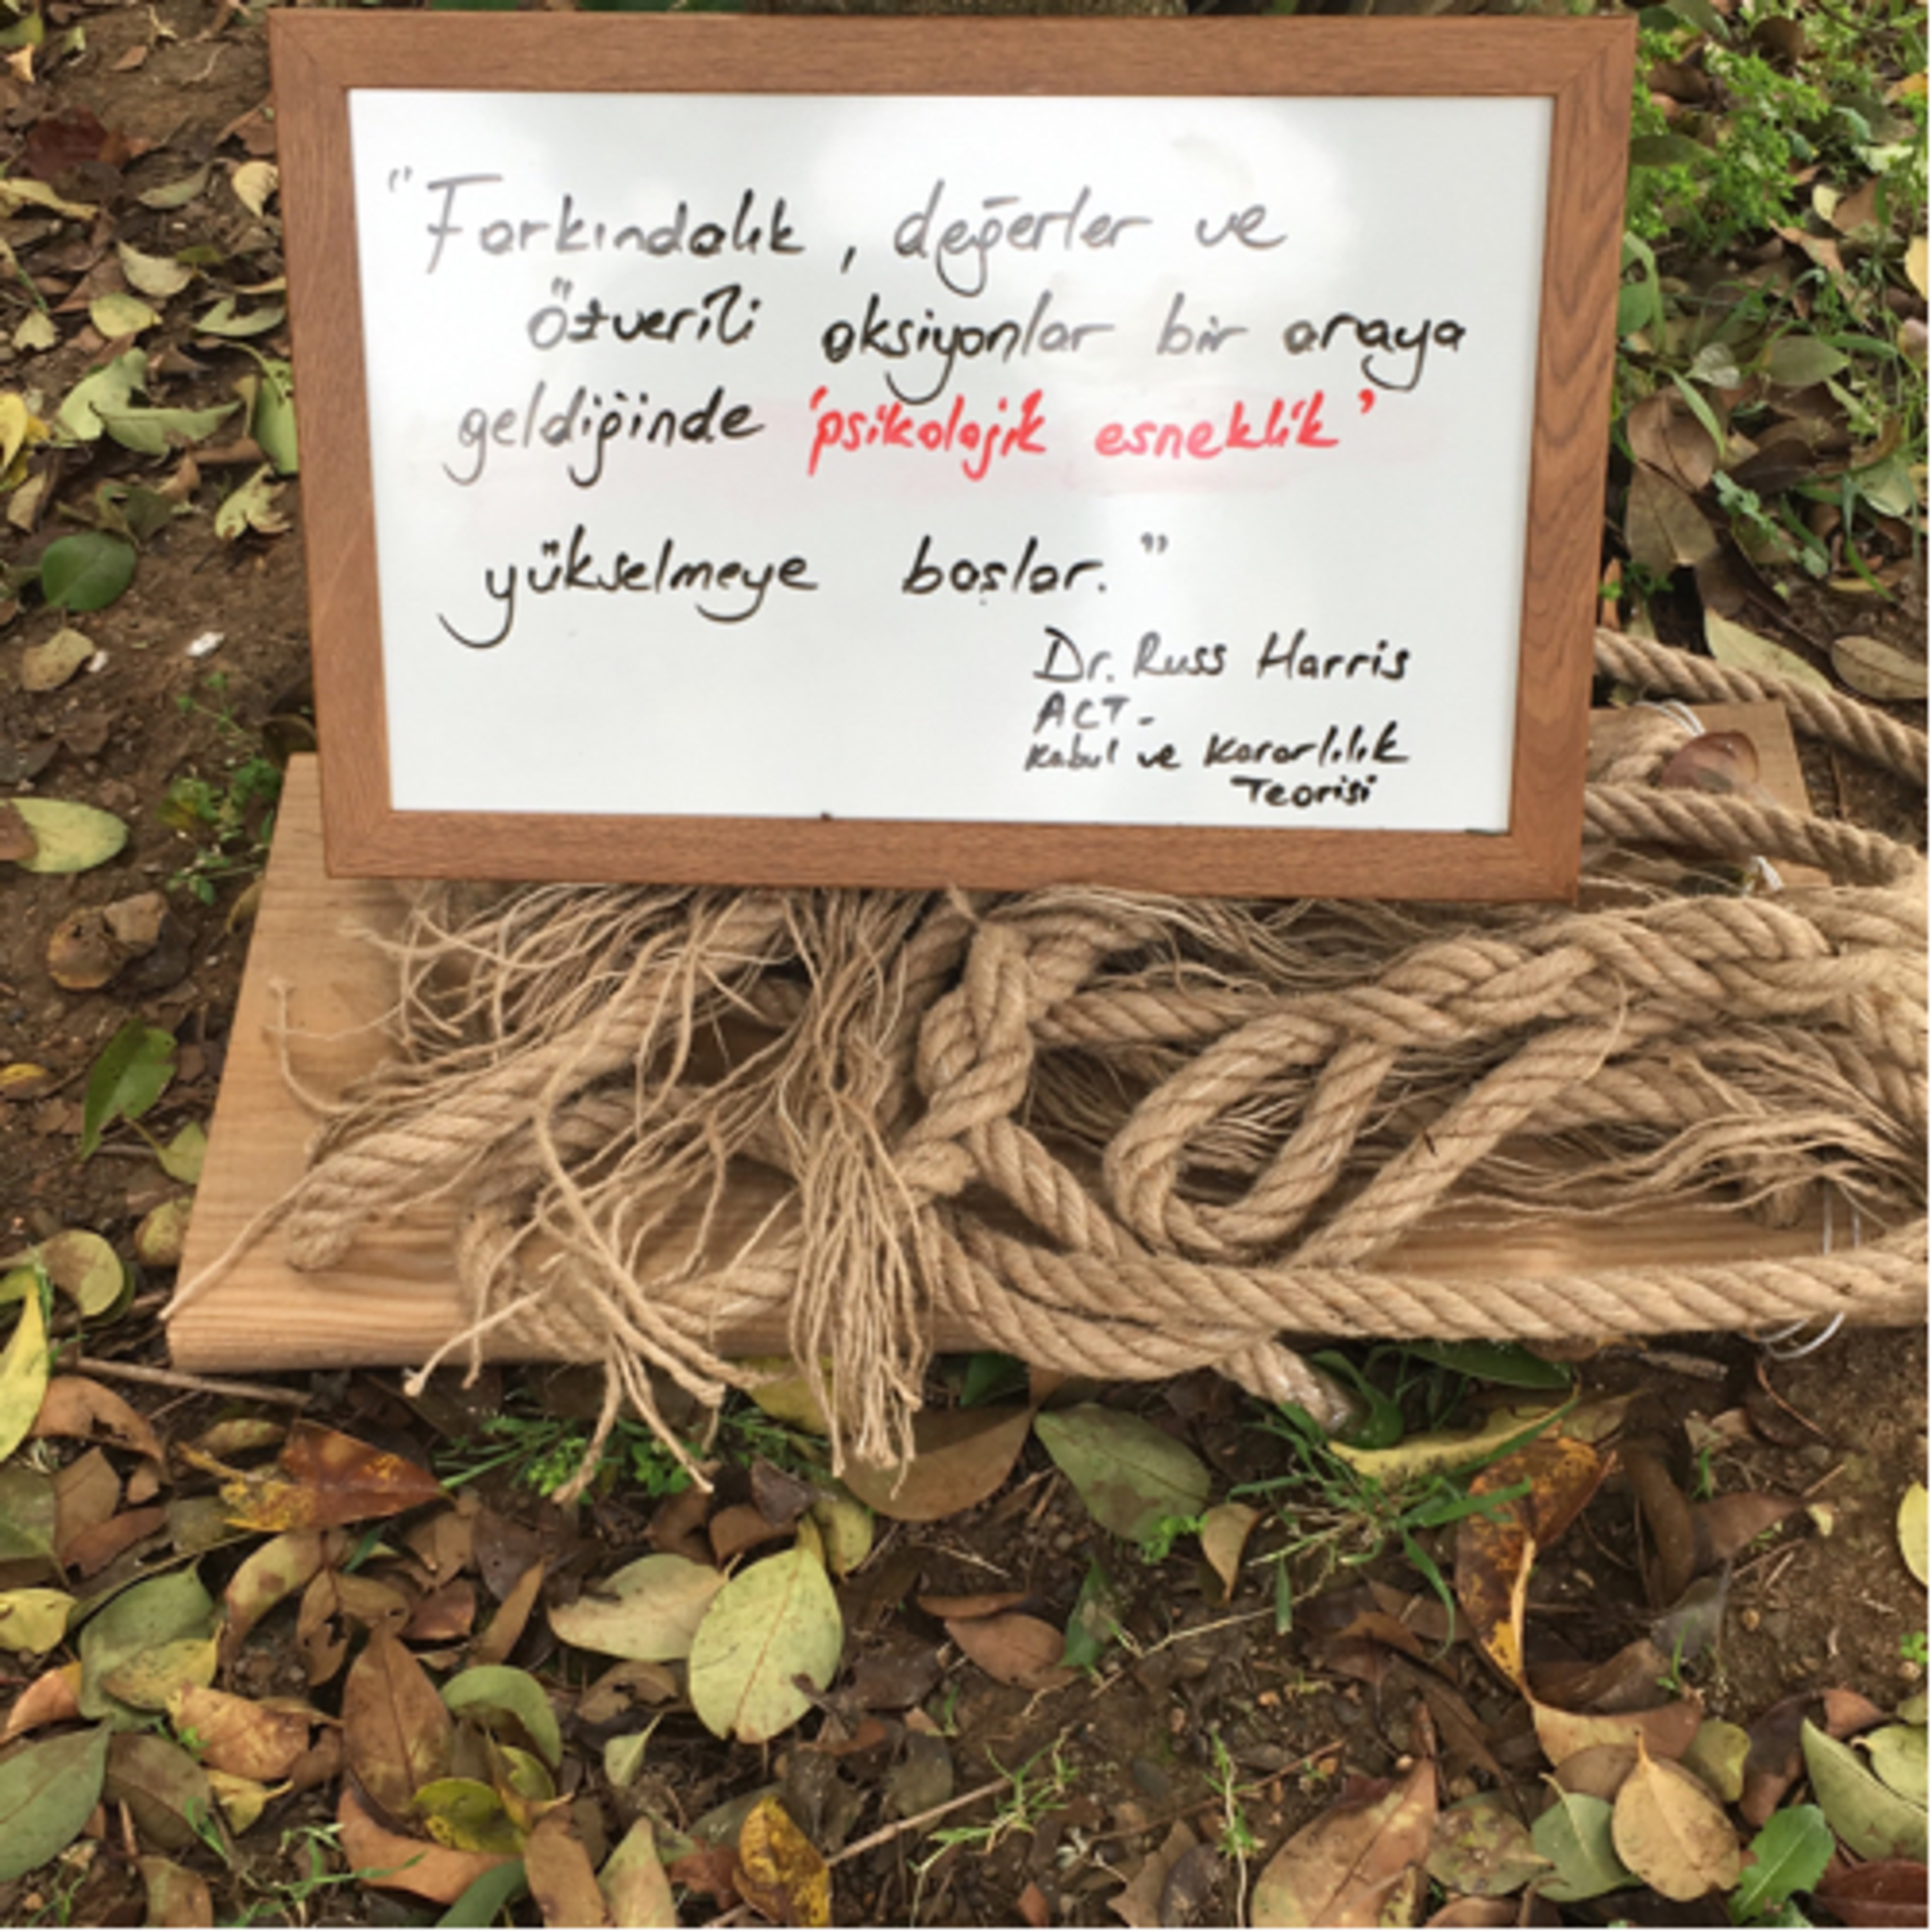 "Farkındalık, değerler ve
özverili aksiyonlar bir araya
geldiğinde 'psikolojik esneklik'
yükselmeye başlar."
Dr. Russ Harris
ACT -
Kabul ve Kararlılık
Teorisi